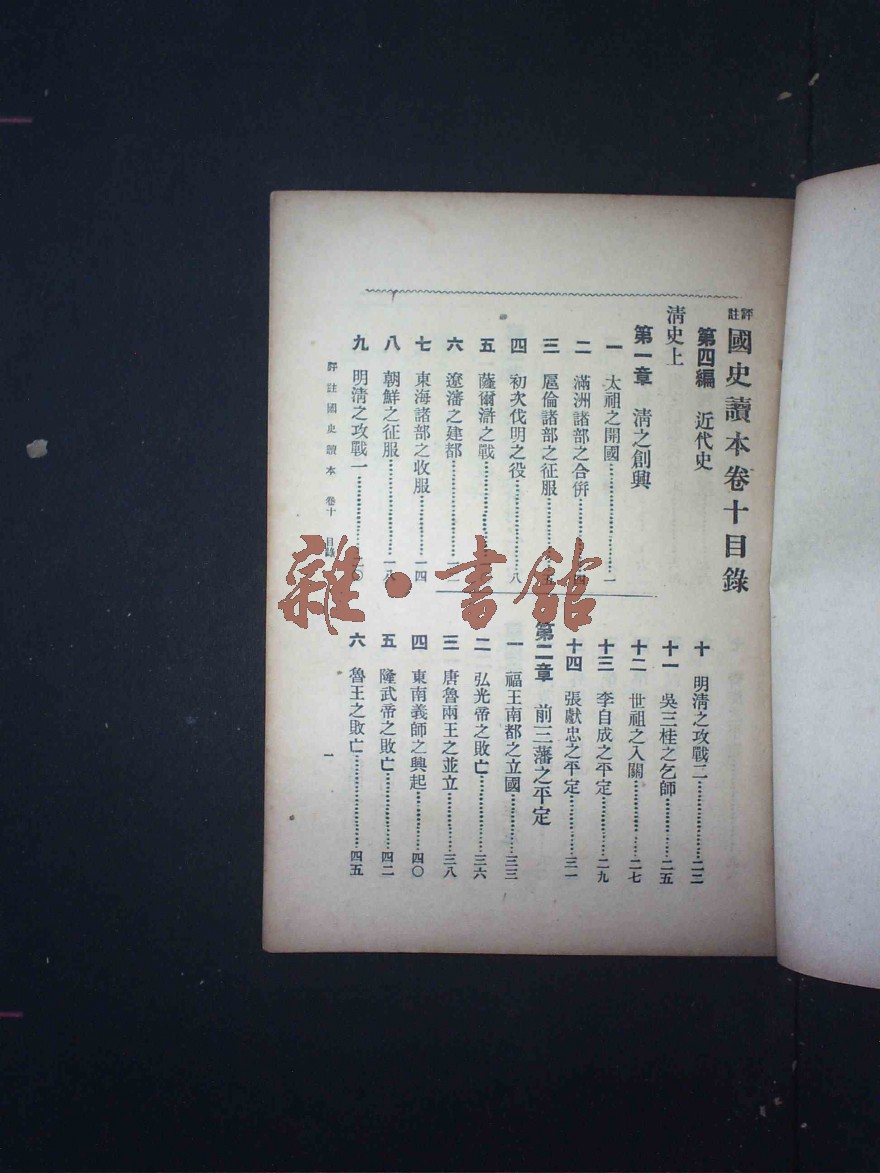 評註國史讀本卷十目錄
第四編 近代史
清史上
第一章 清之創興
一 太祖之開國……一
二 滿洲諸部之合併……四
三 扈倫諸部之征服……五
四 初次伐明之役……八
五 薩爾滸之戰……
六 遼瀋之建都……一二
七 東海諸部之收服……一四
八 朝鮮之征服……一八
九 明清之攻戰一……二〇
十 明清之攻戰二……二三
十一 吳三桂之乞師……二五
十二 世祖之入關……二七
十三 李自成之平定……二九
十四 張獻忠之平定……三一
第二章 前三藩之平定
一 福王南都之立國……三三
二 弘光帝之敗亡……三六
三 唐魯兩王之並立……三八
四 東南義師之興起……四〇
五 隆武帝之敗亡……四二
六 魯王之敗亡……四五
評註國史讀本 卷十 目錄
一
雜·書館